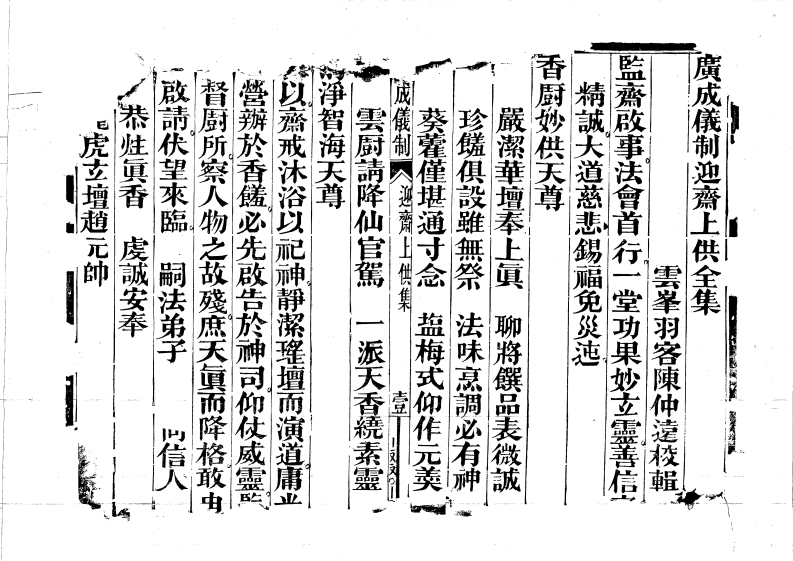 廣成儀制迎齋上供全集
雲峯羽客陳仲遠校輯
監齋啟事法會首行一堂功果妙立靈善信
精誠大道慈悲錫福免災迍
香厨妙供天尊
嚴潔華壇奉上眞 聊將饌品表微誠
珍饈俱設雖無祭 法味烹調必有神
葵藿僅堪通寸念 盐梅式仰作元羮
成儀制 迎齋上供集 壹
雲厨請降仙官駕 一派天香繞素靈
淨智海天尊
以齋戒沐浴以祀神靜潔瑤壇而演道庸
營辦於香饈必先啟告於神司仰仗威靈監
督厨所察人物之故殘庶天眞而降格敢
啟請伏望來臨 嗣法弟子 信人
恭炷眞香 虔誠安奉
虎立壇趙元帥